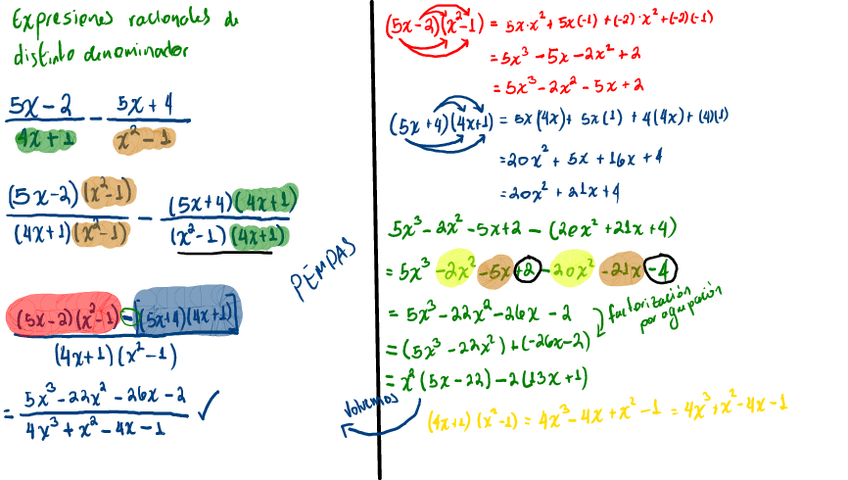 Expresiones racionales de
distinto denominador
5x-2/4x+1 - 5x+4/x²-1
(5x-2)(x²-1)/(4x+1)(x²-1) - (5x+4)(4x+1)/(x²-1)(4x+1)
PEMDAS
(5x-2)(x²-1)-[(5x+4)(4x+1)]/(4x+1)(x²-1)
= 5x³-22x²-26x-2/4x³+x²-4x-1 ✓
(5x-2)(x²-1) = 5x·x²+5x(-1)+(-2)·x²+(-2)(-1)
= 5x³-5x-2x²+2
= 5x³-2x²-5x+2
(5x+4)(4x+1) = 5x(4x)+5x(1)+4(4x)+(4)(1)
= 20x²+5x+16x+4
= 20x²+21x+4
5x³-2x²-5x+2-(20x²+21x+4)
= 5x³-2x²-5x+2-20x²-21x-4
= 5x³-22x²-26x-2
factorización
por agrupación
= (5x³-22x²)+(-26x-2)
= x²(5x-22)-2(13x+1)
Volvemos
(4x+1)(x²-1) = 4x³-4x+x²-1 = 4x³+x²-4x-1